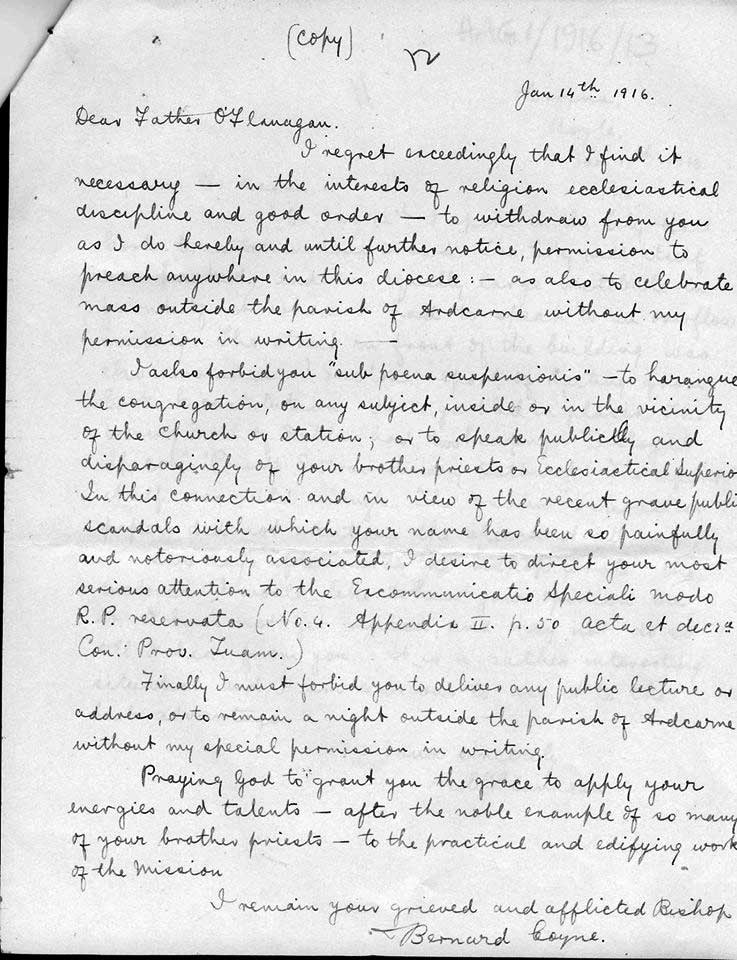 (Copy)
Jan 14th 1916.
Dear Father O'Flanagan.
I regret exceedingly that I find it
necessary — in the interests of religion ecclesiastical
discipline and good order — to withdraw from you
as I do hereby and until further notice, permission to
preach anywhere in this diocese: — as also to celebrate
mass outside the parish of Ardcarne without my
permission in writing. —
I also forbid you "sub poena suspensionis" — to harangue
the congregation, on any subject, inside or in the vicinity
of the church or station; or to speak publicly and
disparagingly of your brother priests or Ecclesiactical Superio
In this connection and in view of the recent grave publi
scandals with which your name has been so painfully
and notoriously associated, I desire to direct your most
serious attention to the Excommunicatio Speciali modo
R.P. reservata (No. 4. Appendix II. p. 50 Acta et decr
Con: Prov. Tuam.)
Finally I must forbid you to deliver any public lecture or
address, or to remain a night outside the parish of Ardcarne
without my special permission in writing.
Praying God to grant you the grace to apply your
energies and talents — after the noble example of so many
of your brother priests — to the practical and edifying work
of the Mission
I remain your grieved and afflicted Bishop
Bernard Coyne.